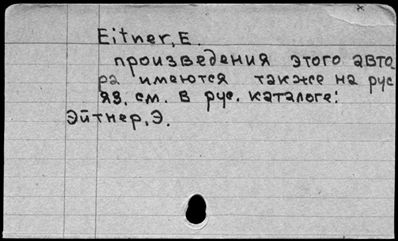 Eitner, E.
произведения этого авто
ра имеются также на рус
яз. см. в рус. каталоге:
Эйтнер, Э.